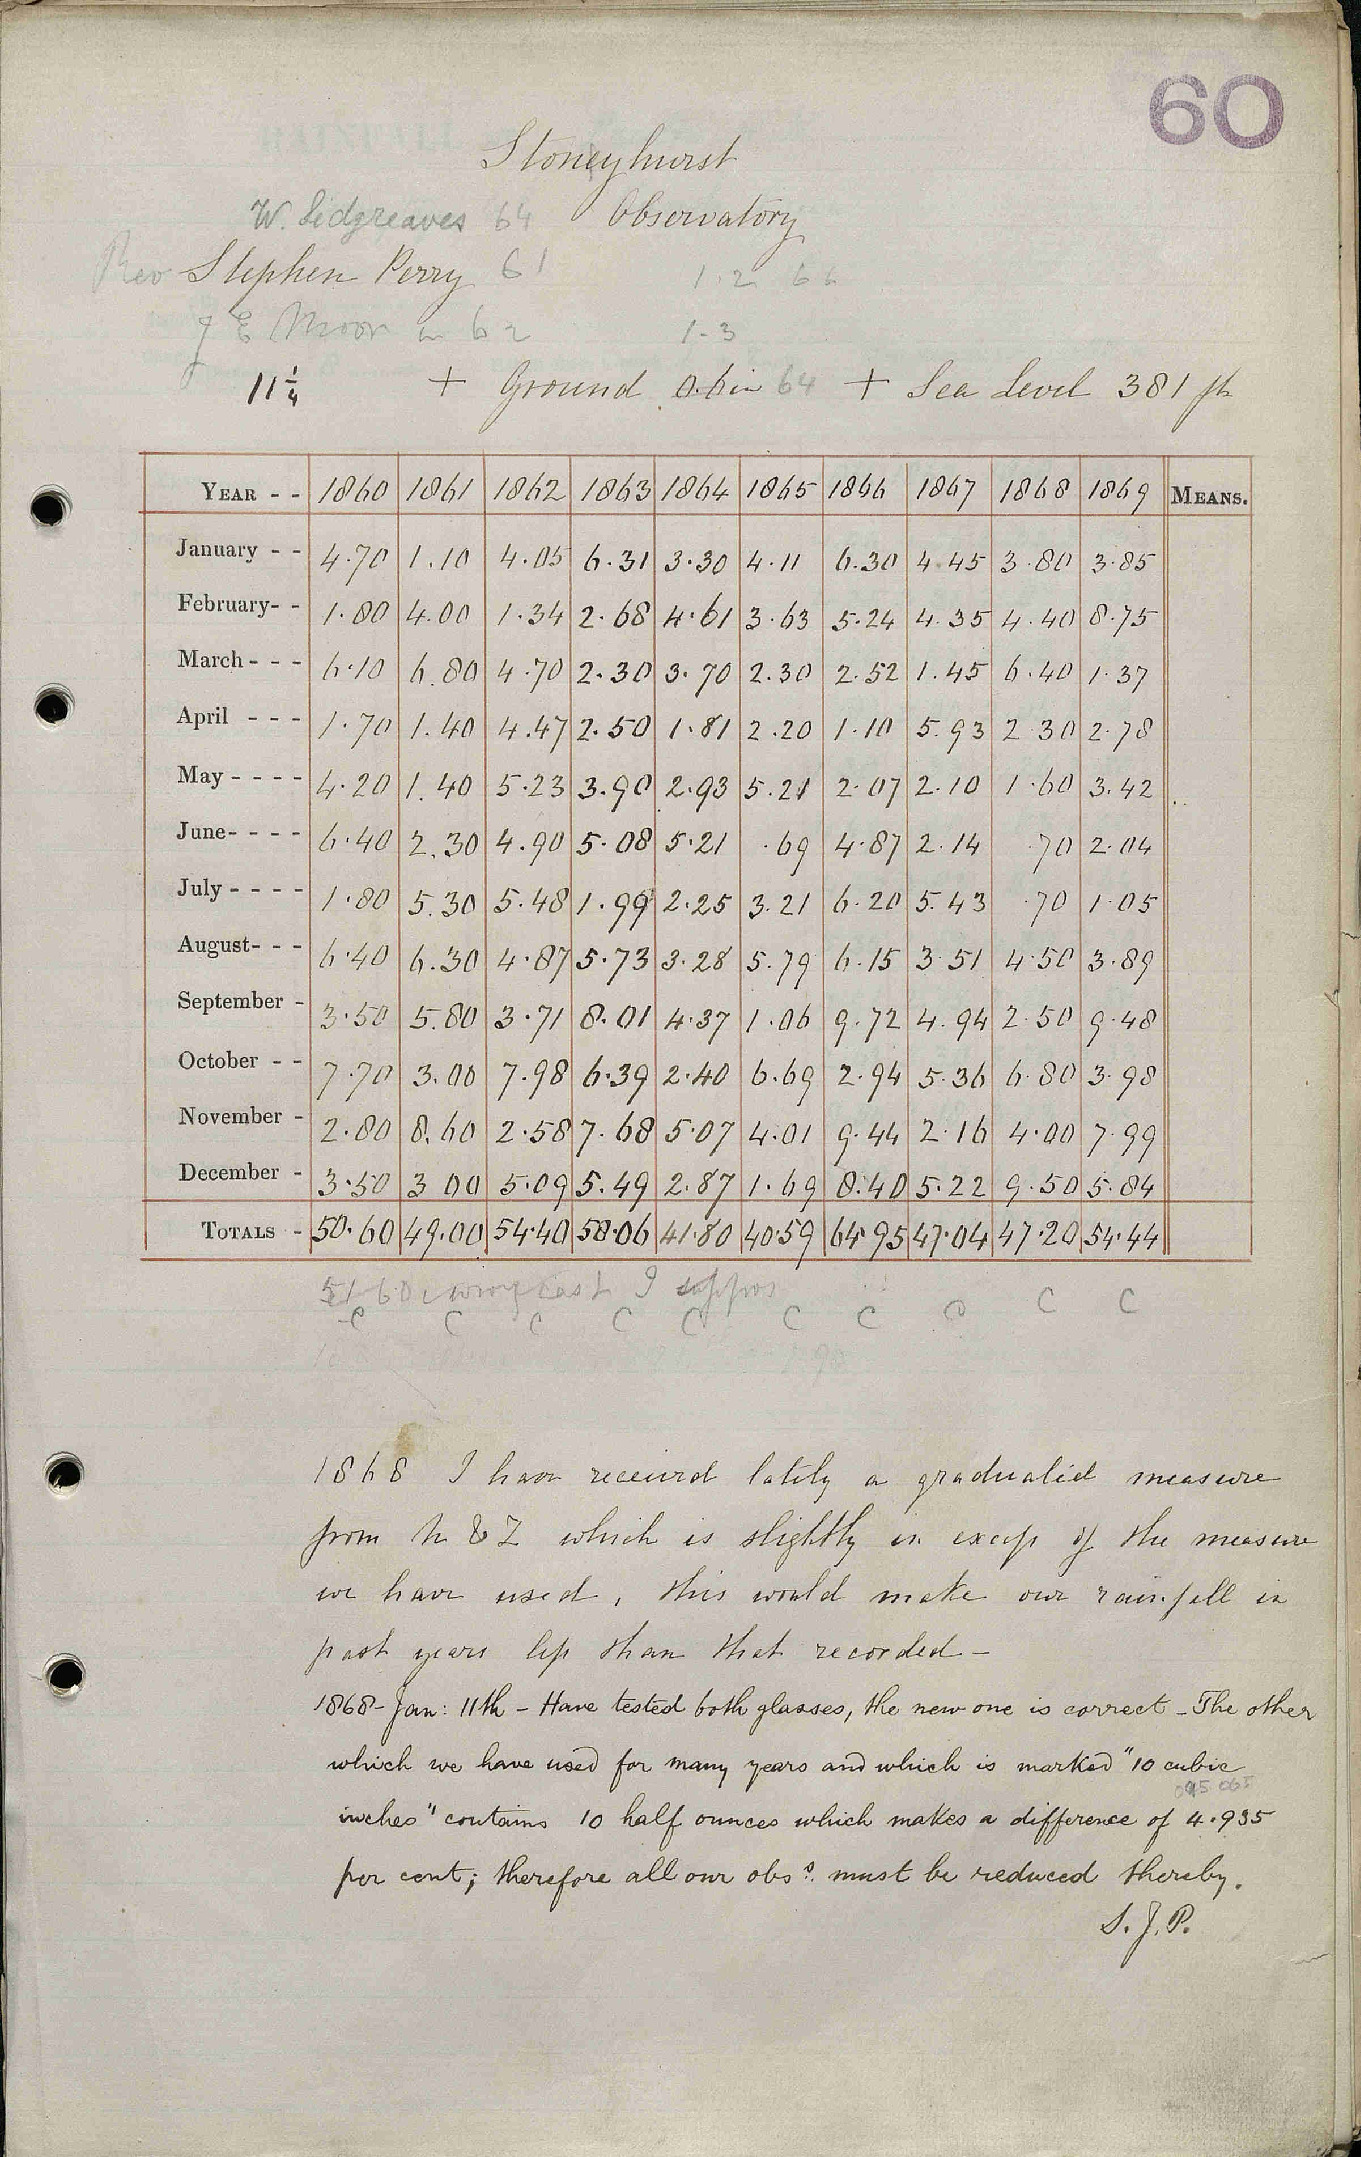 60
Stoneyhurst
W. Sidgreaves 64 Observatory
Rev Stephen Perry 61 1.2 66
J E Moor in 62 1-3
11 1/4 + Ground 0.6in 64 + Sea Level 381 ft
YEAR - - 1860 1861 1862 1863 1864 1865 1866 1867 1868 1869 MEANS.
January - - 4.70 1.10 4.05 6.31 3.30 4.11 6.30 4.45 3.80 3.85
February- - 1.80 4.00 1.34 2.68 4.61 3.63 5.24 4.35 4.40 8.75
March - - - 6.10 6.80 4.70 2.30 3.70 2.30 2.52 1.45 6.40 1.37
April - - - 1.70 1.40 4.47 2.50 1.81 2.20 1.10 5.93 2.30 2.78
May - - - - 4.20 1.40 5.23 3.90 2.93 5.21 2.07 2.10 1.60 3.42
June- - - - 6.40 2.30 4.90 5.08 5.21 .69 4.87 2.14 .70 2.04
July - - - - 1.80 5.30 5.48 1.99 2.25 3.21 6.20 5.43 .70 1.05
August- - - 6.40 6.30 4.87 5.73 3.28 5.79 6.15 3.51 4.50 3.89
September - 3.50 5.80 3.71 8.01 4.37 1.06 9.72 4.94 2.50 9.48
October - - 7.70 3.00 7.98 6.39 2.40 6.69 2.94 5.36 6.80 3.98
November - 2.80 8.60 2.58 7.68 5.07 4.01 9.44 2.16 4.00 7.99
December - 3.50 3 00 5.09 5.49 2.87 1.69 8.40 5.22 9.50 5.84
TOTALS - 50.60 49.00 54.40 58.06 41.80 40.59 64.95 47.04 47.20 54.44
51.60 wrong cast I suppos
C C C C C C C C C C
1868 I have received lately a graduated measure
from N & Z which is slightly in excess of the measure
we have used, this would make our rainfall in
past years less than that recorded -
1868 - Jan: 11th - Have tested both glasses, the new one is correct - The other
which we have used for many years and which is marked "10 cubic
inches" contains 10 half ounces which makes a difference of 4.935
per cent; therefore all our obss. must be reduced thereby.
S. J. P.